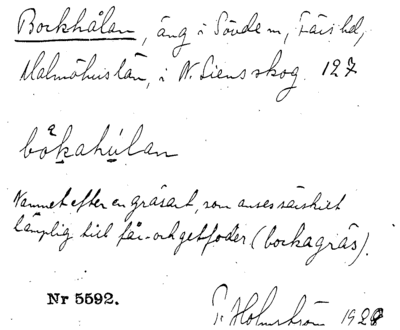 Bockhålan, äng i Sövde sn, Färs hd,
Malmöhus län, i N. Siensskog. 127
bökahúlan
Namnet efter en gräsart, som anses särskilt
lämplig till får- och getfoder (bockagräs).
Nr 5592.
P. Holmström 1928